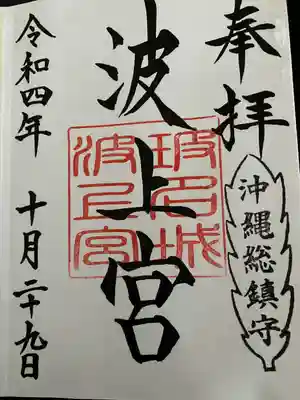 奉拝
沖縄総鎮守
波上宮
令和四年 十月二十九日